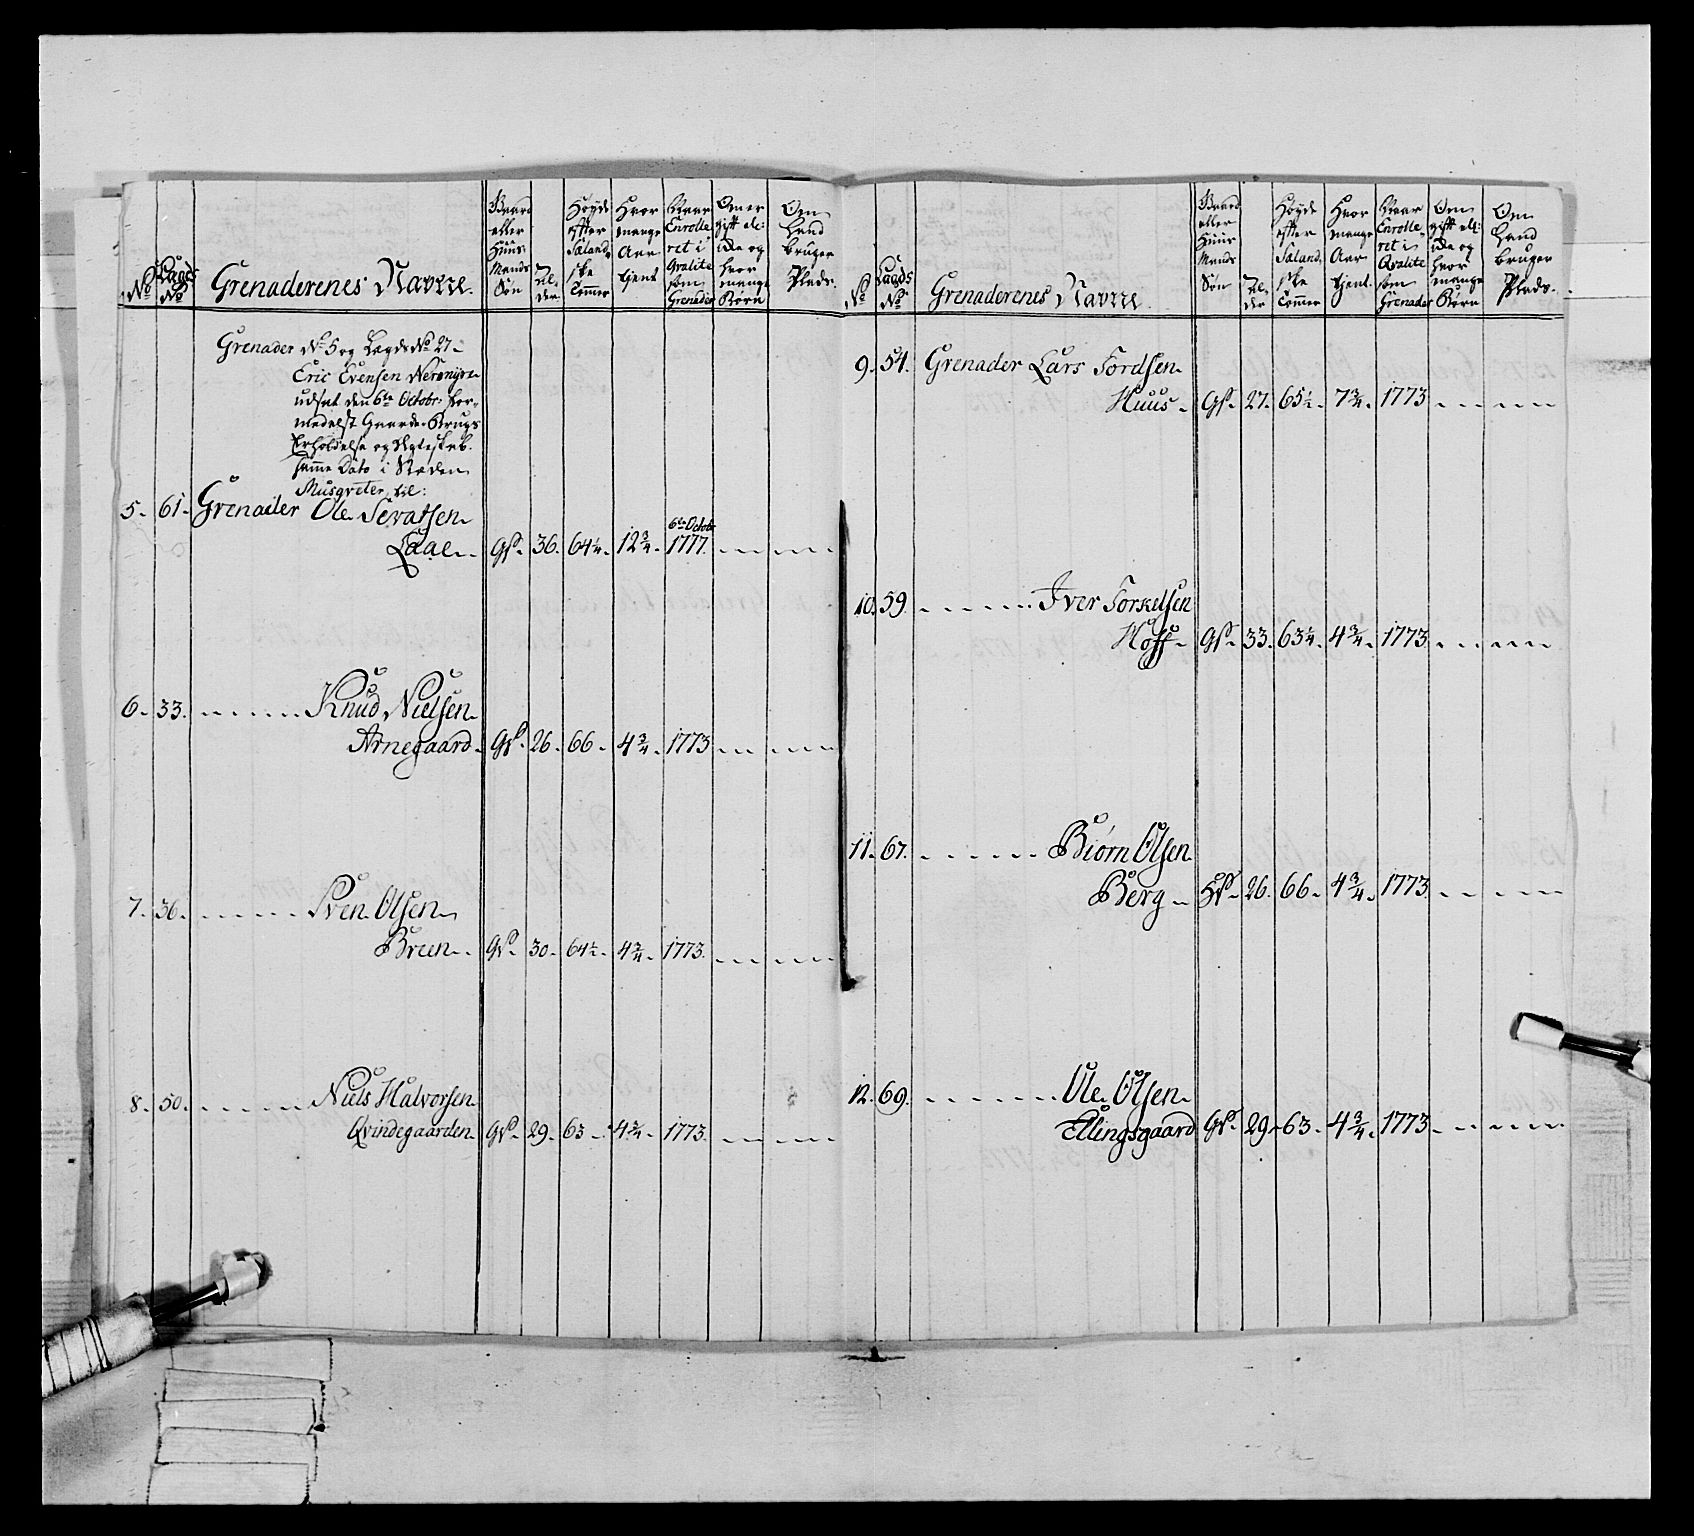 No
Lægds No
Grenaderenes Navne.
Gaard eller Huus Mands Søn
Alder
Høyde efter Sælandske Tommer
Hvor mange Aar tjent
Naar Enrolleret i Qvalite som Grenader
Om er gift eller ikke og hvor mange Børn
Om hand bruger Plads.
Grenader No 5 og Lægds No 27
Eric Evensen
udsat den 6te Octobr: for-
medelst Gaards Brugs
Erholdelse og Ægteskab.
samme Dato i Steden
Musqveter til:
5. 61. Grenader Ole Sevatsen
6te Octobr
Laae GS. 36. 64¼. 12¾. 1777.
6. 33. Knud Nielsen
Arnegaard GS. 26. 66. 4¾. 1773
7. 36. Sven Olsen
Breen GS. 30. 64½. 4¾. 1773.
8. 50. Niels Halvorsen
Qvindegaarden GS. 29. 63. 4¾. 1773.
No
Laugds No
Grenaderenes Navne.
Gaard eller Huus Mands Søn
Alder
Høyde efter Sæland ske Tommer
Hvor mange Aar tjent.
Naar Enrolleret i Qvalite som Grenader
Om gift el: ikke og hvor mange Børn
Om hand bruger Plads.
9. 54. Grenader Lars Tordsen
Huus GS. 27. 65½. 7¾. 1773
10. 59. Iver Torkelsen
Hoff GS. 33. 63¼. 4¾. 1773
11. 67. Biørn Olsen
Berg HS. 26. 66. 4¾. 1773.
12. 69. Ole Olsen
Ellingsgaard GS. 29. 63. 4¾. 1773